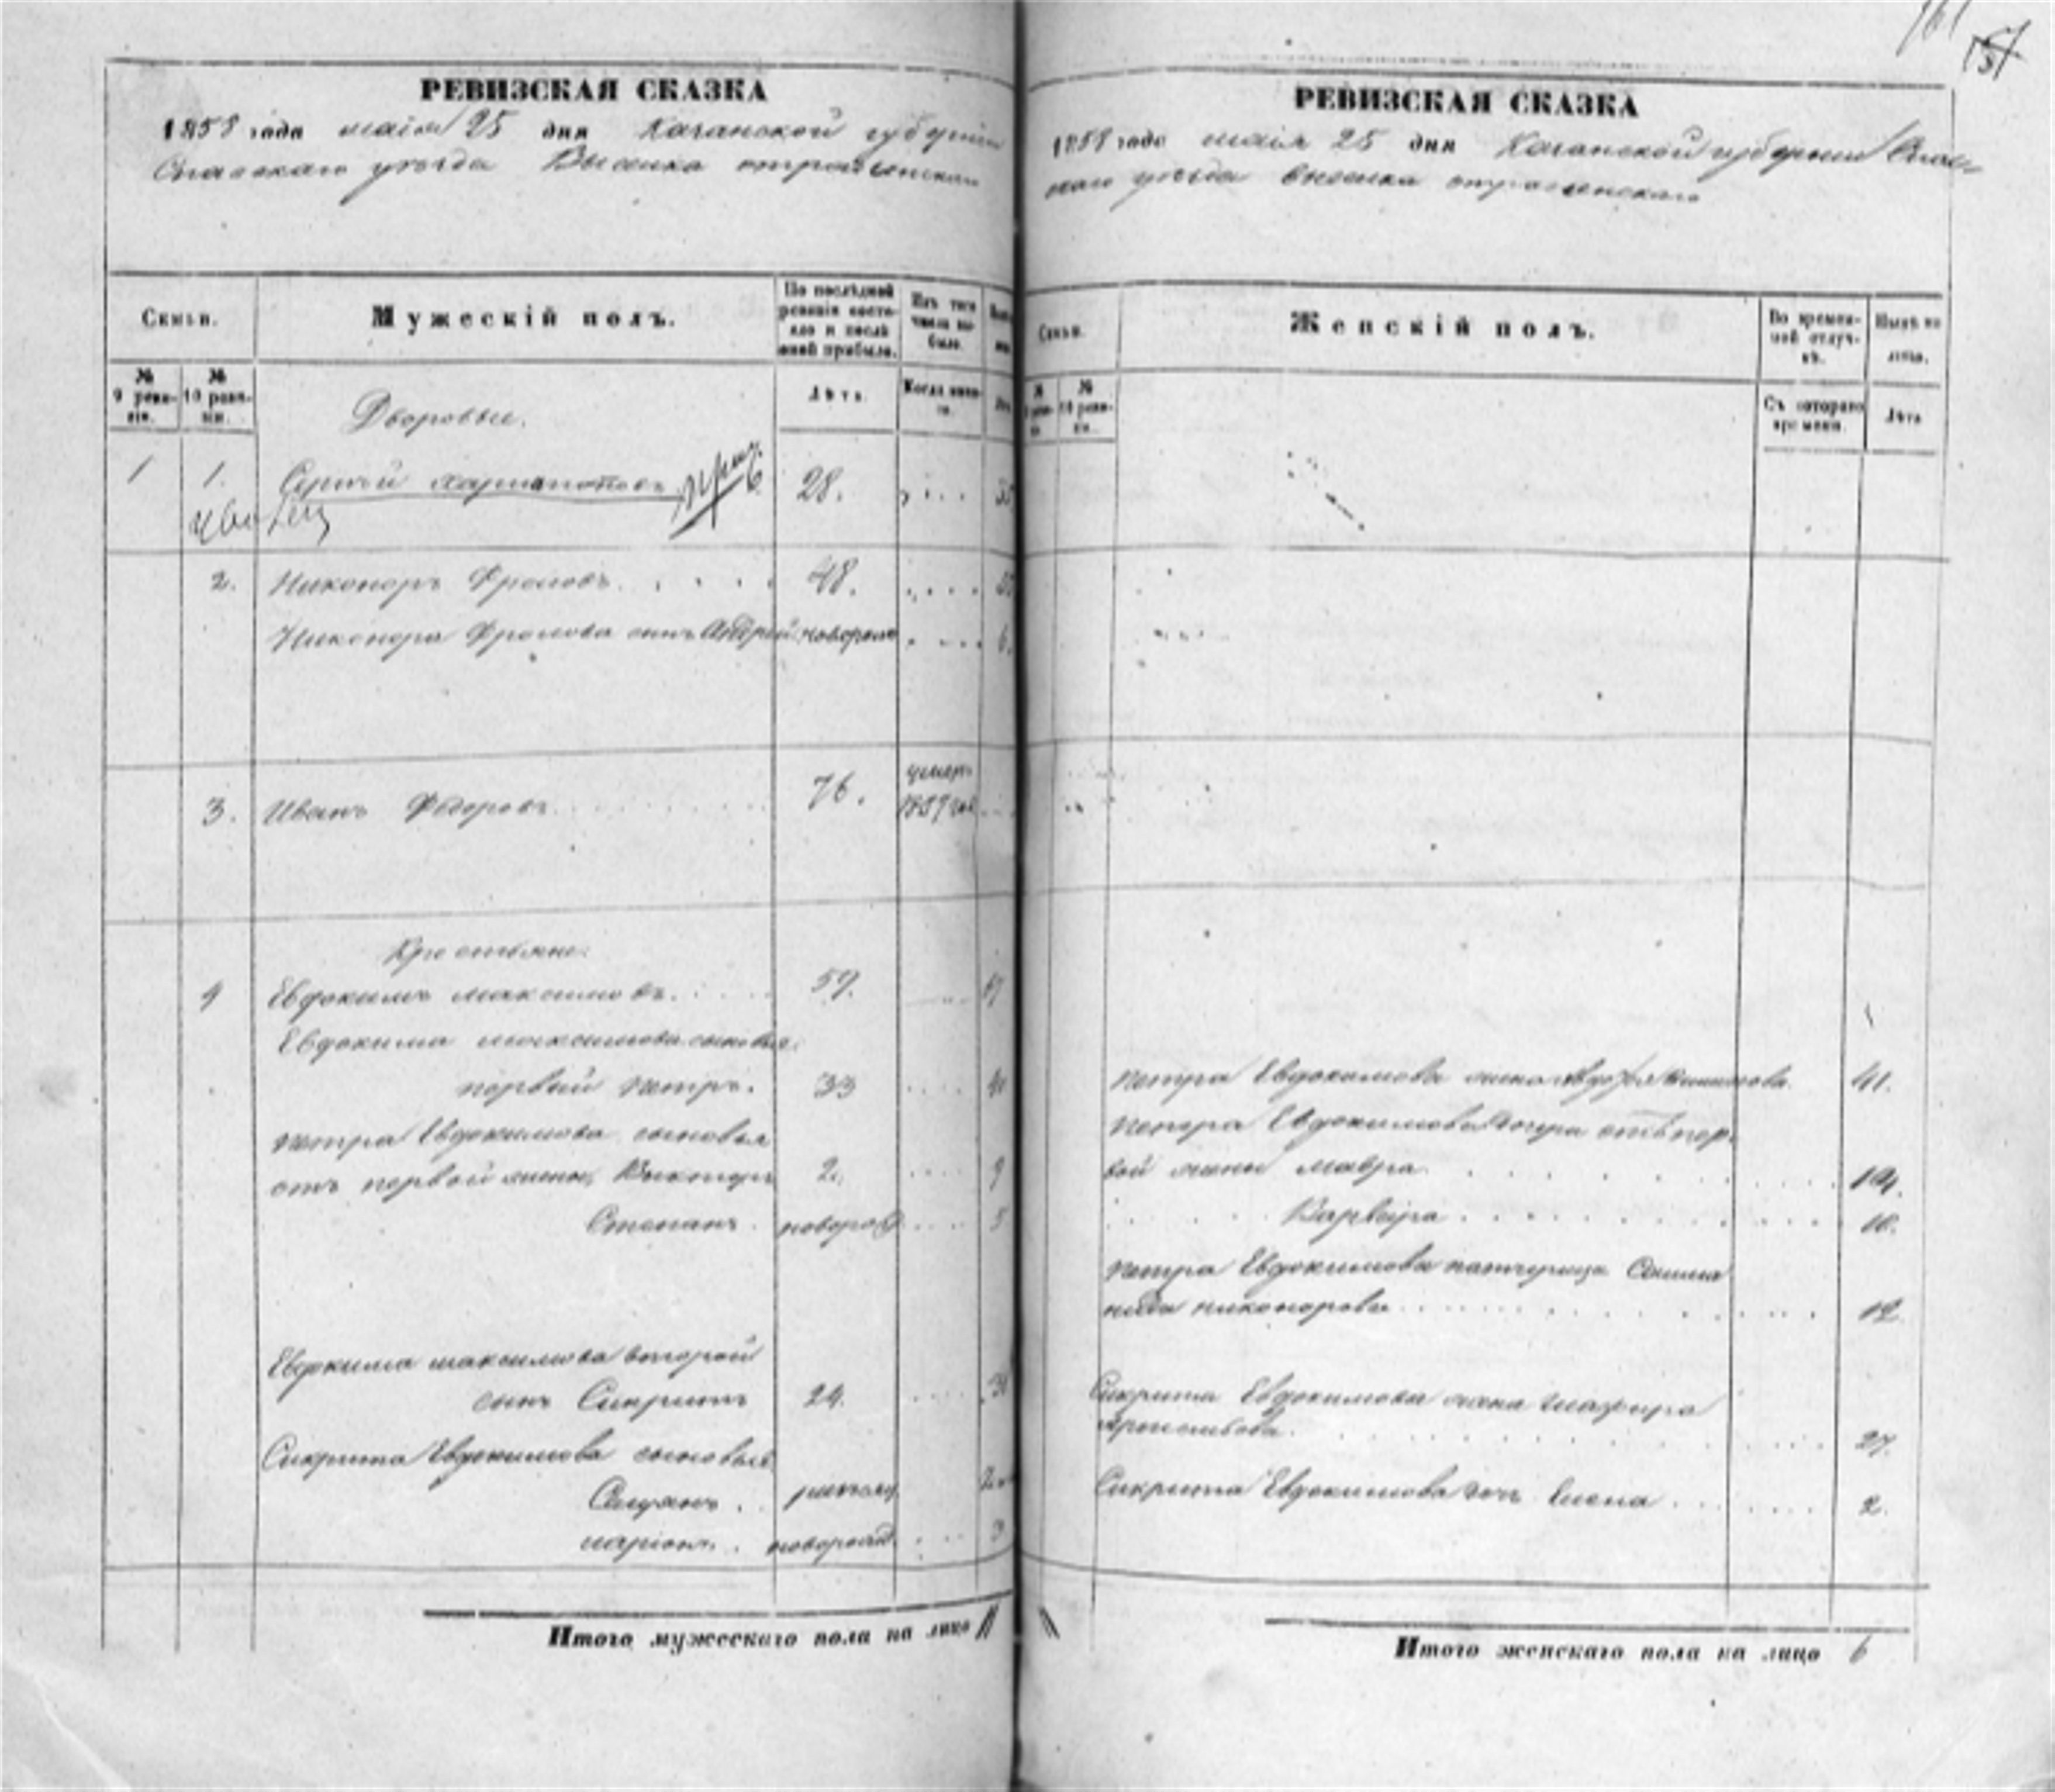 РЕВИЗСКАЯ СКАЗКА
1858 года маія 25 дня Казанской губерніи
Спаскаго уѣзда Выселка
Семьи.
Мужескій полъ.
По послѣдней ревизіи состояло и послѣ оной прибыло.
Изъ того числа выбыло.
№ 9 ревизіи.
№ 10 ревизіи.
Лѣта.
Когда именно.
Дворовые.
1 1. Сергѣй 28.
2. Никоноръ Фроловъ 48.
Никонора Фролова сынъ Андрей новорож 6.
3. Иванъ Федоровъ 76. умеръ 1857 год
Крестьяне.
4 Евдокимъ максимовъ. 57.
Евдокима максимова сыновья.
первый петръ. 33 41
петра Евдокимова сыновья
отъ первой жены, Викторъ 2. 9
Степанъ. новорож 5
Евдокима максимова второй
сынъ Сикритъ 24. 31
Сикрита Евдокимова сыновья
новорожд. 3
Итого мужескаго пола на лицо 11
161
157
РЕВИЗСКАЯ СКАЗКА
1858 года маія 25 дня Казанской губерніи Спас-
скаго уѣзда выселка
Семьи.
Женскій полъ.
Во временной отлучкѣ.
Нынѣ на лицо.
№ 9 ревизіи.
№ 10 ревизіи.
Съ котораго времени.
Лѣта
петра Евдокимова жена 41.
петра Евдокимова дочери отъ пер-
вой жены мавра 14.
Варвара 10.
петра Евдокимова патчерица
никонорова 12
Сикрита Евдокимова жена
27.
Сикрита Евдокимова дочь Елена 2.
Итого женскаго пола на лицо 6